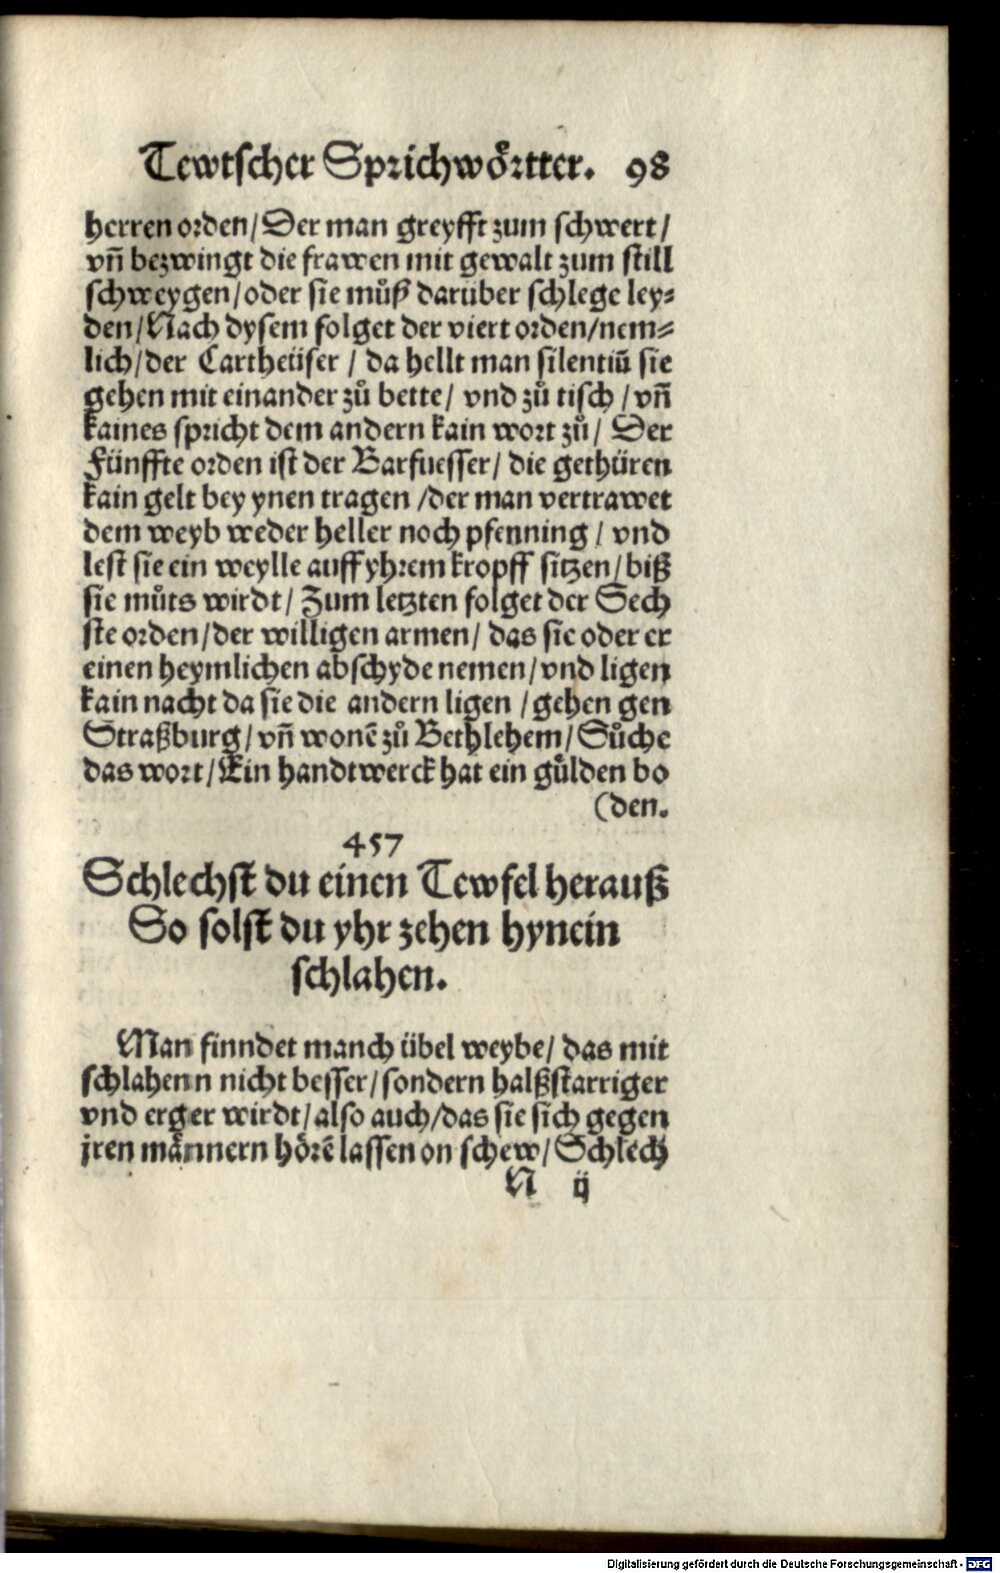 Tewtscher Sprichwoͤrtter. 98
herren orden/Der man greyfft zum schwert/
vñ bezwingt die frawen mit gewalt zum still
schweygen/oder sie muͤß daruber schlege ley⸗
den/Nach dysem folget der viert orden/nem⸗
lich/der Cartheüser / da hellt man silentiū sie
gehen mit einander zů bette/ vnd zů tisch /vñ
kaines spricht dem andern kain wort zů/ Der
Fünffte orden ist der Barfuesser/ die gethüren
kain gelt bey ynen tragen /der man vertrawet
dem weyb weder heller noch pfenning / vnd
lest sie ein weylle auff yhrem kropff sitzen/biß
sie můts wirdt/ Zum letzten folget der Sech
ste orden/der willigen armen/ das sie oder er
einen heymlichen abschyde nemen/vnd ligen
kain nacht da sie die andern ligen /gehen gen
Straßburg/vñ wonē zů Bethlehem/Sůche
das wort/Ein handtwerck hat ein guͤlden bo
(den.
457
Schlechst du einen Tewfel herauß
So solst du yhr zehen hynein
schlahen.
Man finndet manch übel weybe/ das mit
schlahenn nicht besser/sondern halßstarriger
vnd erger wirdt/also auch/das sie sich gegen
jren maͤnnern hoͤrē lassen on schew/ Schlech
N ij
Digitalisierung gefördert durch die Deutsche Forschungsgemeinschaft - DFG